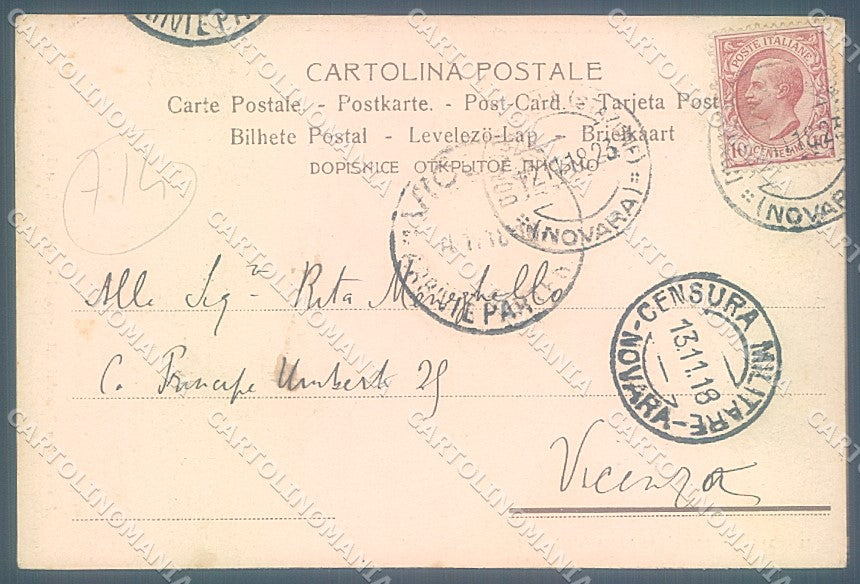 CARTOLINA POSTALE
Carte Postale. - Postkarte. - Post-Card. - Tarjeta Post
Bilhete Postal - Levelezö-Lap - Briefkaart
DOPISNICE ОТКРЫТОЕ ПИСЬМО
POSTE ITALIANE
10 CENTESIMI
(NOVARA)
12.11.18 23
(NOVARA)
714
Alla Sigra Rita Meneghello
C. Principe Umberto 25
Vicenza
CENSURA MILITARE - NOVARA
13.11.18
CARTOLINOMANIA